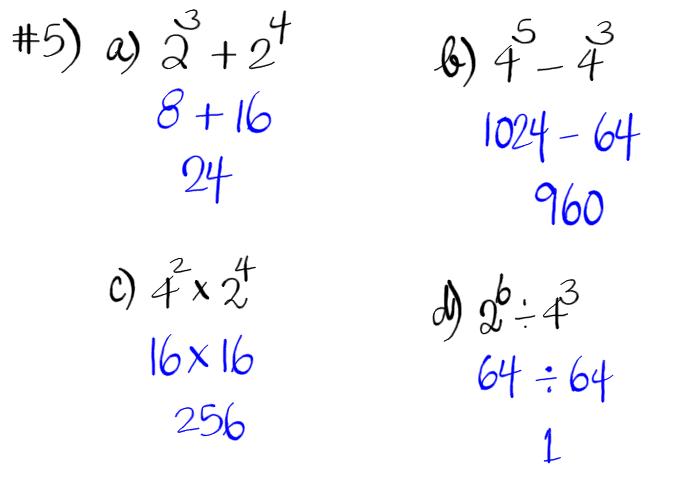 #5) a) 2³ + 2⁴
8 + 16
24
b) 4⁵ – 4³
1024 – 64
960
c) 4² x 2⁴
16 x 16
256
d) 2⁶ ÷ 4³
64 ÷ 64
1